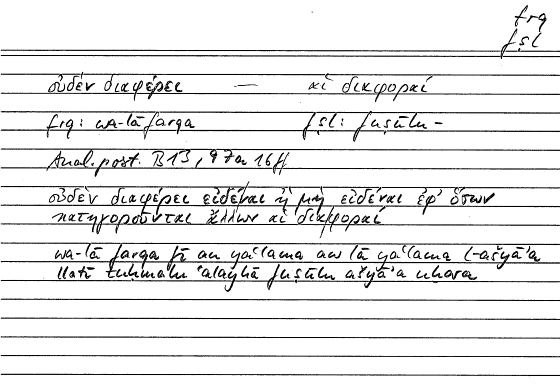 frq
fṣl
οὐδὲν διαφέρει — αἱ διαφοραί
frq: wa-lā farqa fṣl: fuṣūlu –
Anal. post. B 13, 97a 16 ff
οὐδὲν διαφέρει εἰδέναι ἢ μὴ εἰδέναι ἐφ' ὅσων
κατηγοροῦνται ἄλλων αἱ διαφοραί
wa-lā farqa fī an yaʿlama aw lā yaʿlama l-ašyāʾa
llatī tuḥmalu ʿalayhā fuṣūlu ašyāʾa uḫara